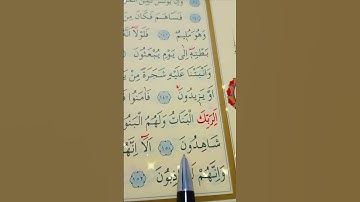 وَاِنَّ يُونُسَ
فَسَاهَمَ فَكَانَ مِنَ
وَهُوَ مُلٖيمٌ ﴿١٤٢﴾ فَلَوْلَٓا
بَطْنِهٖٓ اِلٰى يَوْمِ يُبْعَثُونَ
وَاَنْبَتْنَا عَلَيْهِ شَجَرَةً مِنْ
اَوْ يَزٖيدُونَ ﴿١٤٧﴾ فَاٰمَنُوا
اَلِرَبِّكَ الْبَنَاتُ وَلَهُمُ الْبَنُونَ
شَاهِدُونَ ﴿١٥٠﴾ اَلَٓا اِنَّهُمْ
وَاِنَّهُمْ لَكَاذِبُونَ ﴿١٥٢﴾